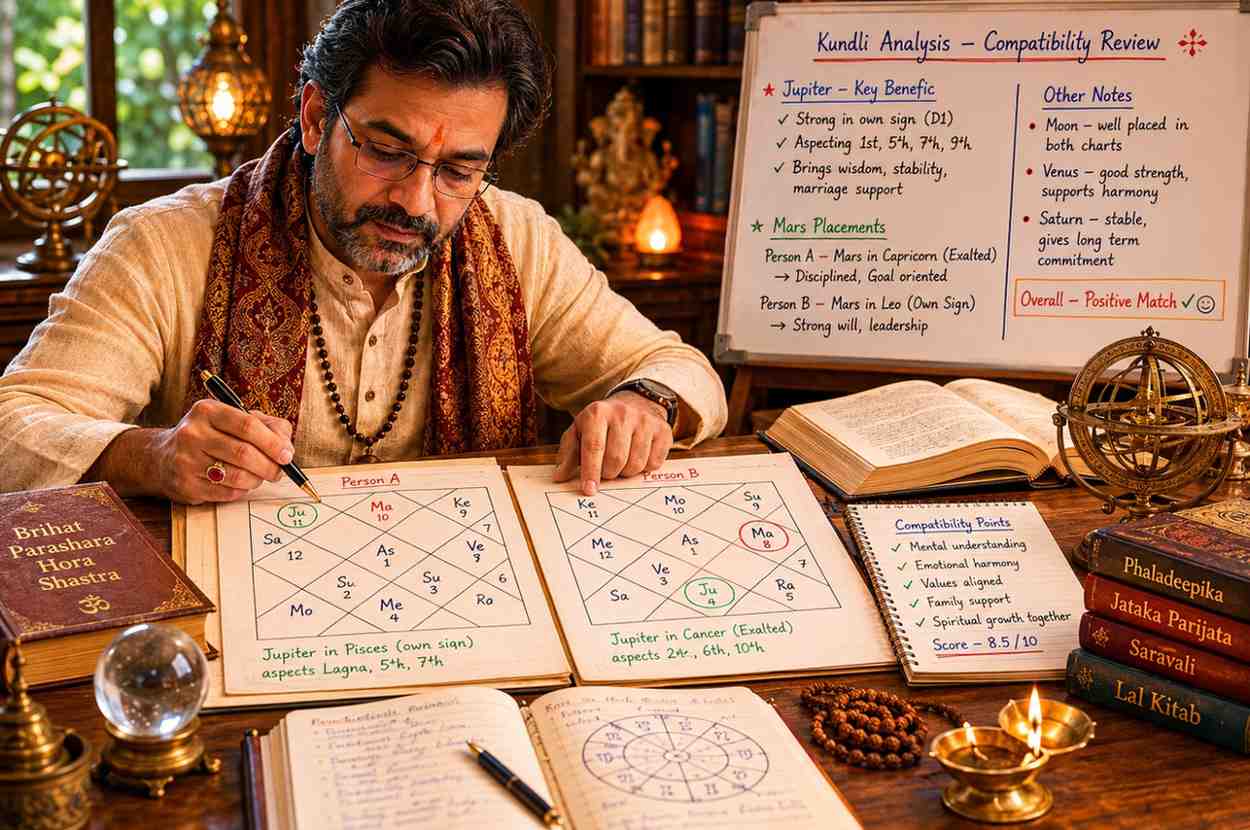 Kundli Analysis – Compatibility Review
Jupiter – Key Benefic
✓ Strong in own sign (D1)
✓ Aspecting 1st, 5th, 7th, 9th
✓ Brings wisdom, stability,
marriage support
Mars Placements
Person A – Mars in Capricorn (Exalted)
→ Disciplined, Goal oriented
Person B – Mars in Leo (Own Sign)
→ Strong will, leadership
Other Notes
• Moon – well placed in
both charts
• Venus – good strength,
supports harmony
• Saturn – stable,
gives long term
commitment
Overall – Positive Match ✓
Person A
Ju
11
Ma
10
Ke
9
Sa
12
As
1
7
Ve
3
Su
2
Su
3
6
Mo
Me
4
Ra
Jupiter in Pisces (own sign)
aspects Lagna, 5th, 7th
Person B
Ke
11
Mo
10
Su
9
Me
12
As
1
Ma
8
Ve
3
7
Sa
Ju
4
Ra
5
Jupiter in Cancer (Exalted)
aspects 6th, 10th
Compatibility Points
✓ Mental understanding
✓ Emotional harmony
✓ Values aligned
✓ Family support
✓ Spiritual growth together
Score – 8.5/10
Brihat
Parashara
Hora
Shastra
ॐ
Phaladeepika
Jataka Parijata
Saravali
Lal Kitab